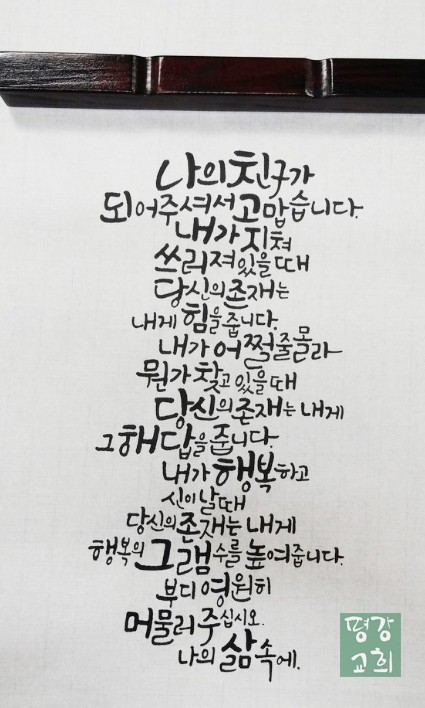 나의 친구가
되어주셔서 고맙습니다.
내가 지쳐
쓰러져 있을 때
당신의 존재는
내게 힘을 줍니다.
내가 어쩔줄 몰라
뭔가 찾고 있을 때
당신의 존재는 내게
그 해답을 줍니다.
내가 행복하고
신이 날 때
당신의 존재는 내게
행복의 그램 수를 높여줍니다.
부디 영원히
머물러 주십시오.
나의 삶 속에.
평강
교회